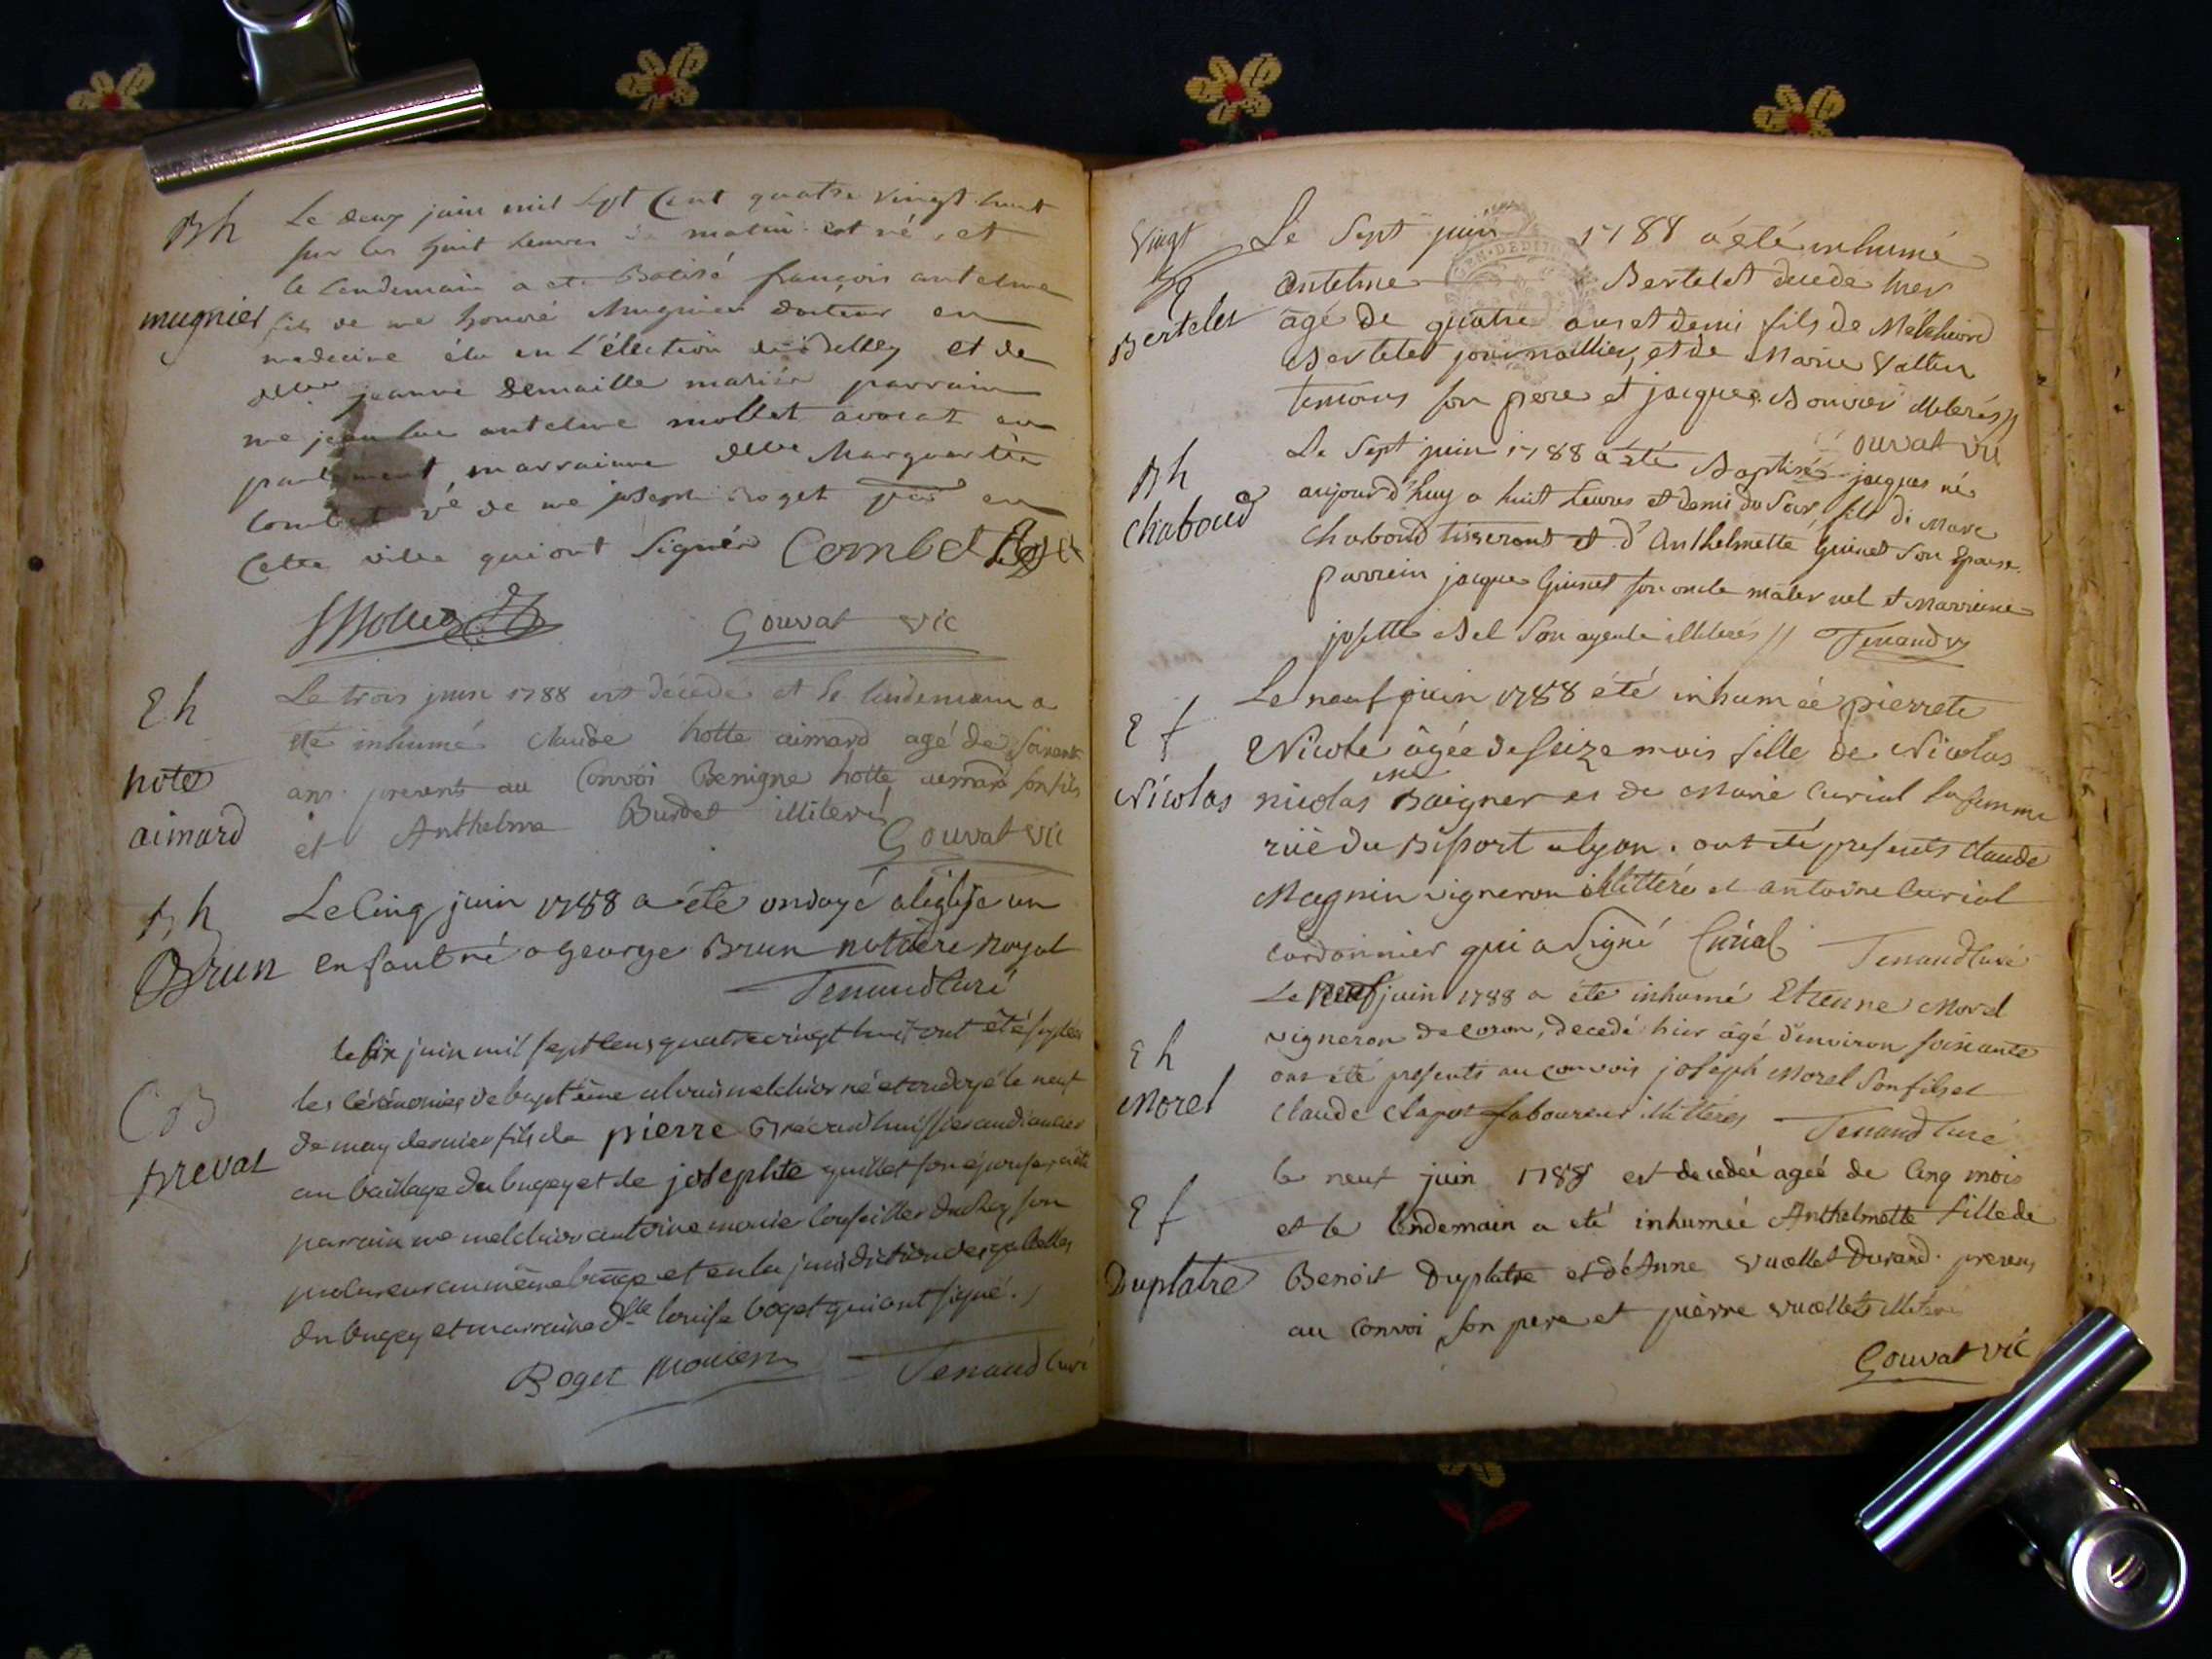 Bh
Le deux juin mil sept cent quatre vingt huit
sur les huit heures du matin est né, et
le lendemain a ete Batisé françois antelme
mugnier
fils de me honoré Mugnier docteur en
medecine élu en l'élection de Belley et de
delle jeanne Demaille mariés parrain
me jean luc antelme mollet avocat au
parlement, marrainne delle Marguerite
Combet vé de me joseph Roget en
Cette ville qui ont Signés Combet Roget
Gouvat vic
E h
Le trois juin 1788 est décédé et le lendemain a
été inhumé Claude hotte aimard agé de soixante
hote
ans. presents au Convoi Benigne hotte aimard son fils
aimard
et Anthelme Burdet illiterés
Gouvat vic
B h
Le Cinq juin 1788 a été ondoyé a l'église un
Brun
enfant né a George Brun notaire Royal
Tenand Curé
le six juin mil sept cens quatrevingt huit ont été supléés
CB
les cérémonies de baptême a louis melchior né et ondoyé le neuf
de may dernier fils de pierre Brévard huissier audiancier
Breval
au bailliage du bugey et de josephte guillet son épouse, a été
parrain me melchior antoine monier Conseiller du Roy son
procureur au même bailiage et en la jurisdiction des gabelles
du bugey et marraine dlle louise boget qui ont signé.
Boget monier Tenand Curé
Vingt
Le Sept juin 1788 a été inhumé
Antelme Bertelet decedé hier
Bertelet
âgé de quatre ans et demi fils de Melchiord
Bertelet journaillier, et de Marie Vallin
temoins son pere et jacques Bouvier illiterés //
Gouvat vic
Bh
Le Sept juin 1788 a été Baptisé jacques né
Chaboud
aujourd'huy a huit heures et demi du Soir, fils de Marc
Chaboud tisserant et d'Anthelmette Guinet Son Epouse.
Parrein jacque Guinet son oncle maternel et Marreine
josette Bel Son ayeule illiterés // Tenand vic
Le neuf juin 1788 été inhumée pierrete
E f
Nicole âgée de seize mois fille de Nicolas
Nicolas
nicolas Baigner et de Marie Curial la femme
rüe du Bisport a lyon. ont été presents Claude
Magnin vigneron illitteré et antoine Curial
Cordonnier qui a Signé Curial Tenand Curé
Le neuf juin 1788 a été inhumé Etienne Morel
E h
vigneron de Coron, decedé hier âgé d'environ soixante
ont été presents au convois joseph Morel Son fils et
Morel
Claude Clapot laboureur illitterés Tenand Curé
le neuf juin 1788 est decedée agée de Cinq mois
E f
et le lendemain a eté inhumée Anthelmette fille de
Duplatre
Benoit Duplatre et d'Anne Vuaillet Durand. presens
au Convoi son pere et pierre Vuaillet illiterés
Gouvat vic